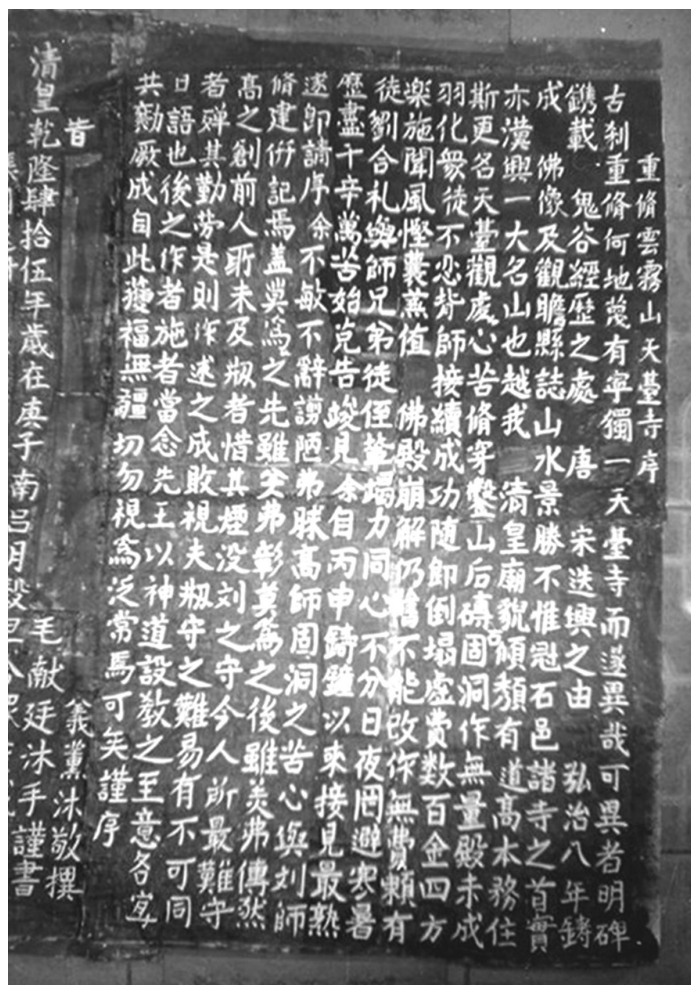 重脩雲霧山天臺寺序
古刹重脩何地蔑有寧獨一天臺寺而遂異哉可異者明碑
鐫載 鬼谷經歴之處 唐 宋迭興之由 弘治八年鑄
成 佛像及觀瞻縣誌山水景勝不惟冠石邑諸寺之首實
亦漢興一大名山也越我 清皇廟貌傾頹有道高本務住
斯更名天臺觀處心苦脩穿鑿山后磚固洞作無量殿未成
羽化衆徒不忍背師接續成功随即倒塌虚費数百金四方
楽施聞風慳囊蒸值 佛殿崩解仍舊不能改作無賣頼有
徒劉合札與師兄弟徒侄輩竭力同心不分日夜罔避寒暑
歴盡千辛萬苦始克告竣見余自丙申鑄鐘以来接見最熟
遂即請序余不敏不辭謭陋弗昧高師固洞之苦心與刘師
脩建併記焉盖莫為之先雖美弗彰莫為之後雖美弗傳然
髙之創前人所未及刱者惜其煙没刘之守今人所最難守
者殫其勤劳是則作述之成敗視夫刱守之難易有不可同
日語也後之作者施者當念先王以神道設教之至意各宜
共勷厥成自此獲福無疆切勿視為泛常焉可矣謹序
義薫沐敬撰
昔 毛献廷沐手謹書
清皇乾隆肆拾伍年歳在庚子南吕月